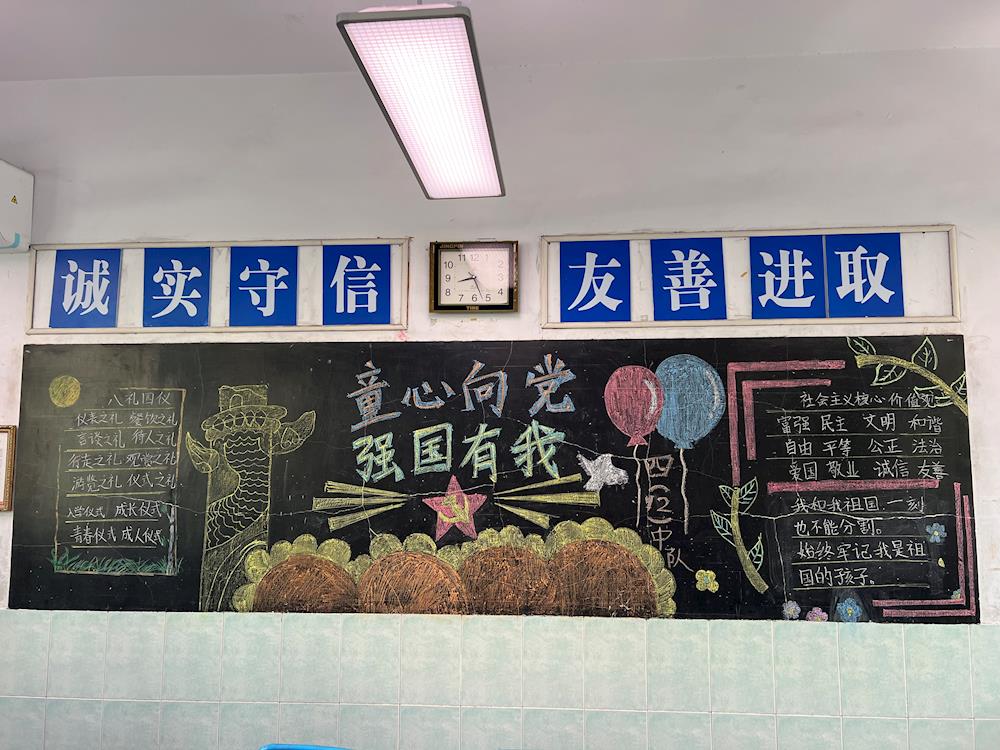 诚实守信
JINGPIN
12
11
1
10
2
9
3
8
4
7
6
5
TIME
友善进取
八礼四仪
仪表之礼 餐饮之礼
言谈之礼 待人之礼
行走之礼 观赏之礼
游览之礼 仪式之礼
入学仪式 成长仪式
青春仪式 成人仪式
童心向党
强国有我
四(2)中队
社会主义核心价值观
富强 民主 文明 和谐
自由 平等 公正 法治
爱国 敬业 诚信 友善
我和我祖国一刻
也不能分割。
始终牢记我是祖
国的孩子。